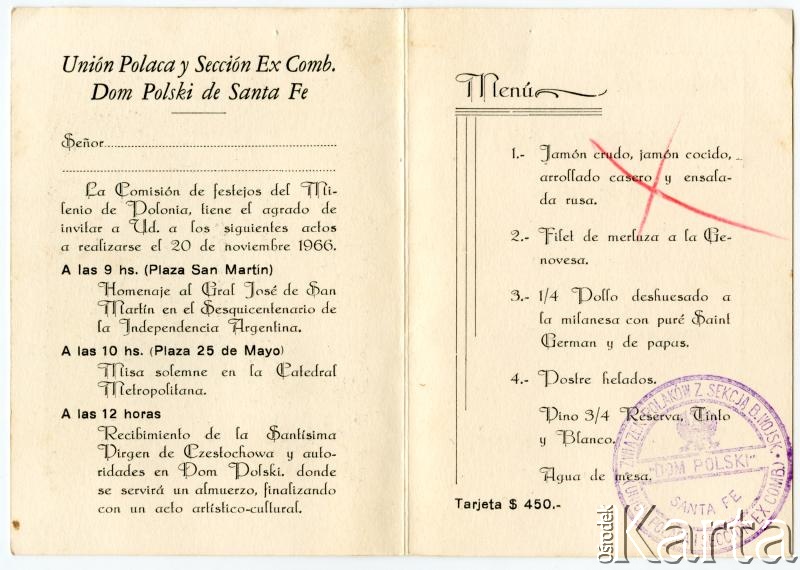 Unión Polaca y Sección Ex Comb.
Dom Polski de Santa Fe
Señor
La Comisión de festejos del Mi-
lenio de Polonia, tiene el agrado de
invitar a Ud. a los siguientes actos
a realizarse el 20 de noviembre 1966.
A las 9 hs. (Plaza San Martín)
Homenaje al Gral José de San
Martín en el Sesquicentenario de
la Independencia Argentina.
A las 10 hs. (Plaza 25 de Mayo)
Misa solemne en la Catedral
Metropolitana.
A las 12 horas
Recibimiento de la Santísima
Virgen de Czestochowa y auto-
ridades en Dom Polski. donde
se servirá un almuerzo, finalizando
con un acto artístico-cultural.
Menú
1.- Jamón crudo, jamón cocido,
arrollado casero y ensala-
da rusa.
2.- Filet de merluza a la Ge-
novesa.
3.- 1/4 Pollo deshuesado a
la milanesa con puré Saint
German y de papas.
4.- Postre helados.
Vino 3/4 Reserva, Tinto
y Blanco.
Agua de mesa.
Tarjeta $ 450.-
POLAKÓW Z SEKCJĄ B. WOJSK.
"DOM POLSKI"
SANTA FE
SECCION EX COMB.)
ośrodek
Karta